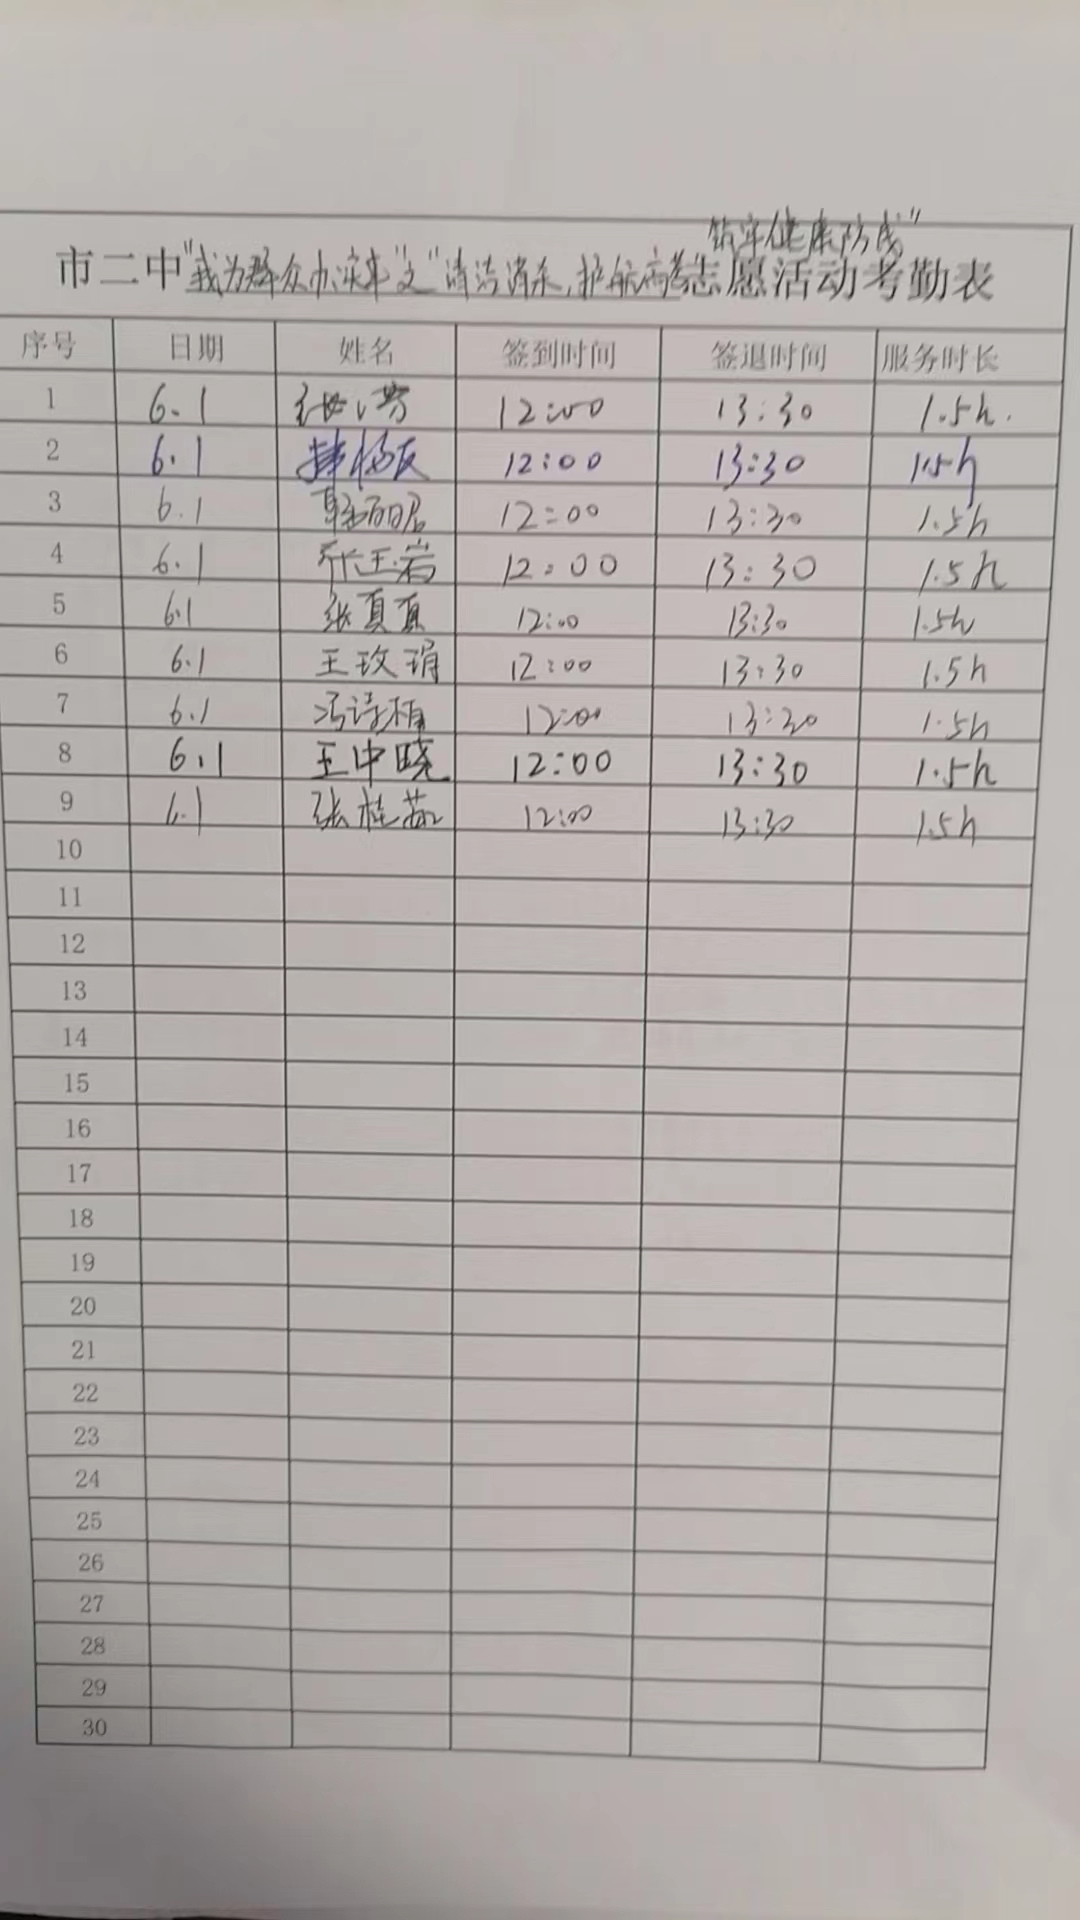 筑牢健康防线"
市二中"我为群众办实事"之"清洁消杀,护航 志愿活动考勤表
序号 日期 姓名 签到时间 签退时间 服务时长
1 6.1 12:00 13:30 1.5h.
2 6.1 12:00 13:30 1.5h
3 6.1 12:00 13:30 1.5h
4 6.1 张玉岩 12:00 13:30 1.5h
5 6.1 张真真 12:00 13:30 1.5h
6 6.1 王玫琄 12:00 13:30 1.5h
7 6.1 冯诗楠 12:00 13:30 1.5h
8 6.1 王中晓 12:00 13:30 1.5h
9 6.1 张桂茹 12:00 13:30 1.5h
10
11
12
13
14
15
16
17
18
19
20
21
22
23
24
25
26
27
28
29
30